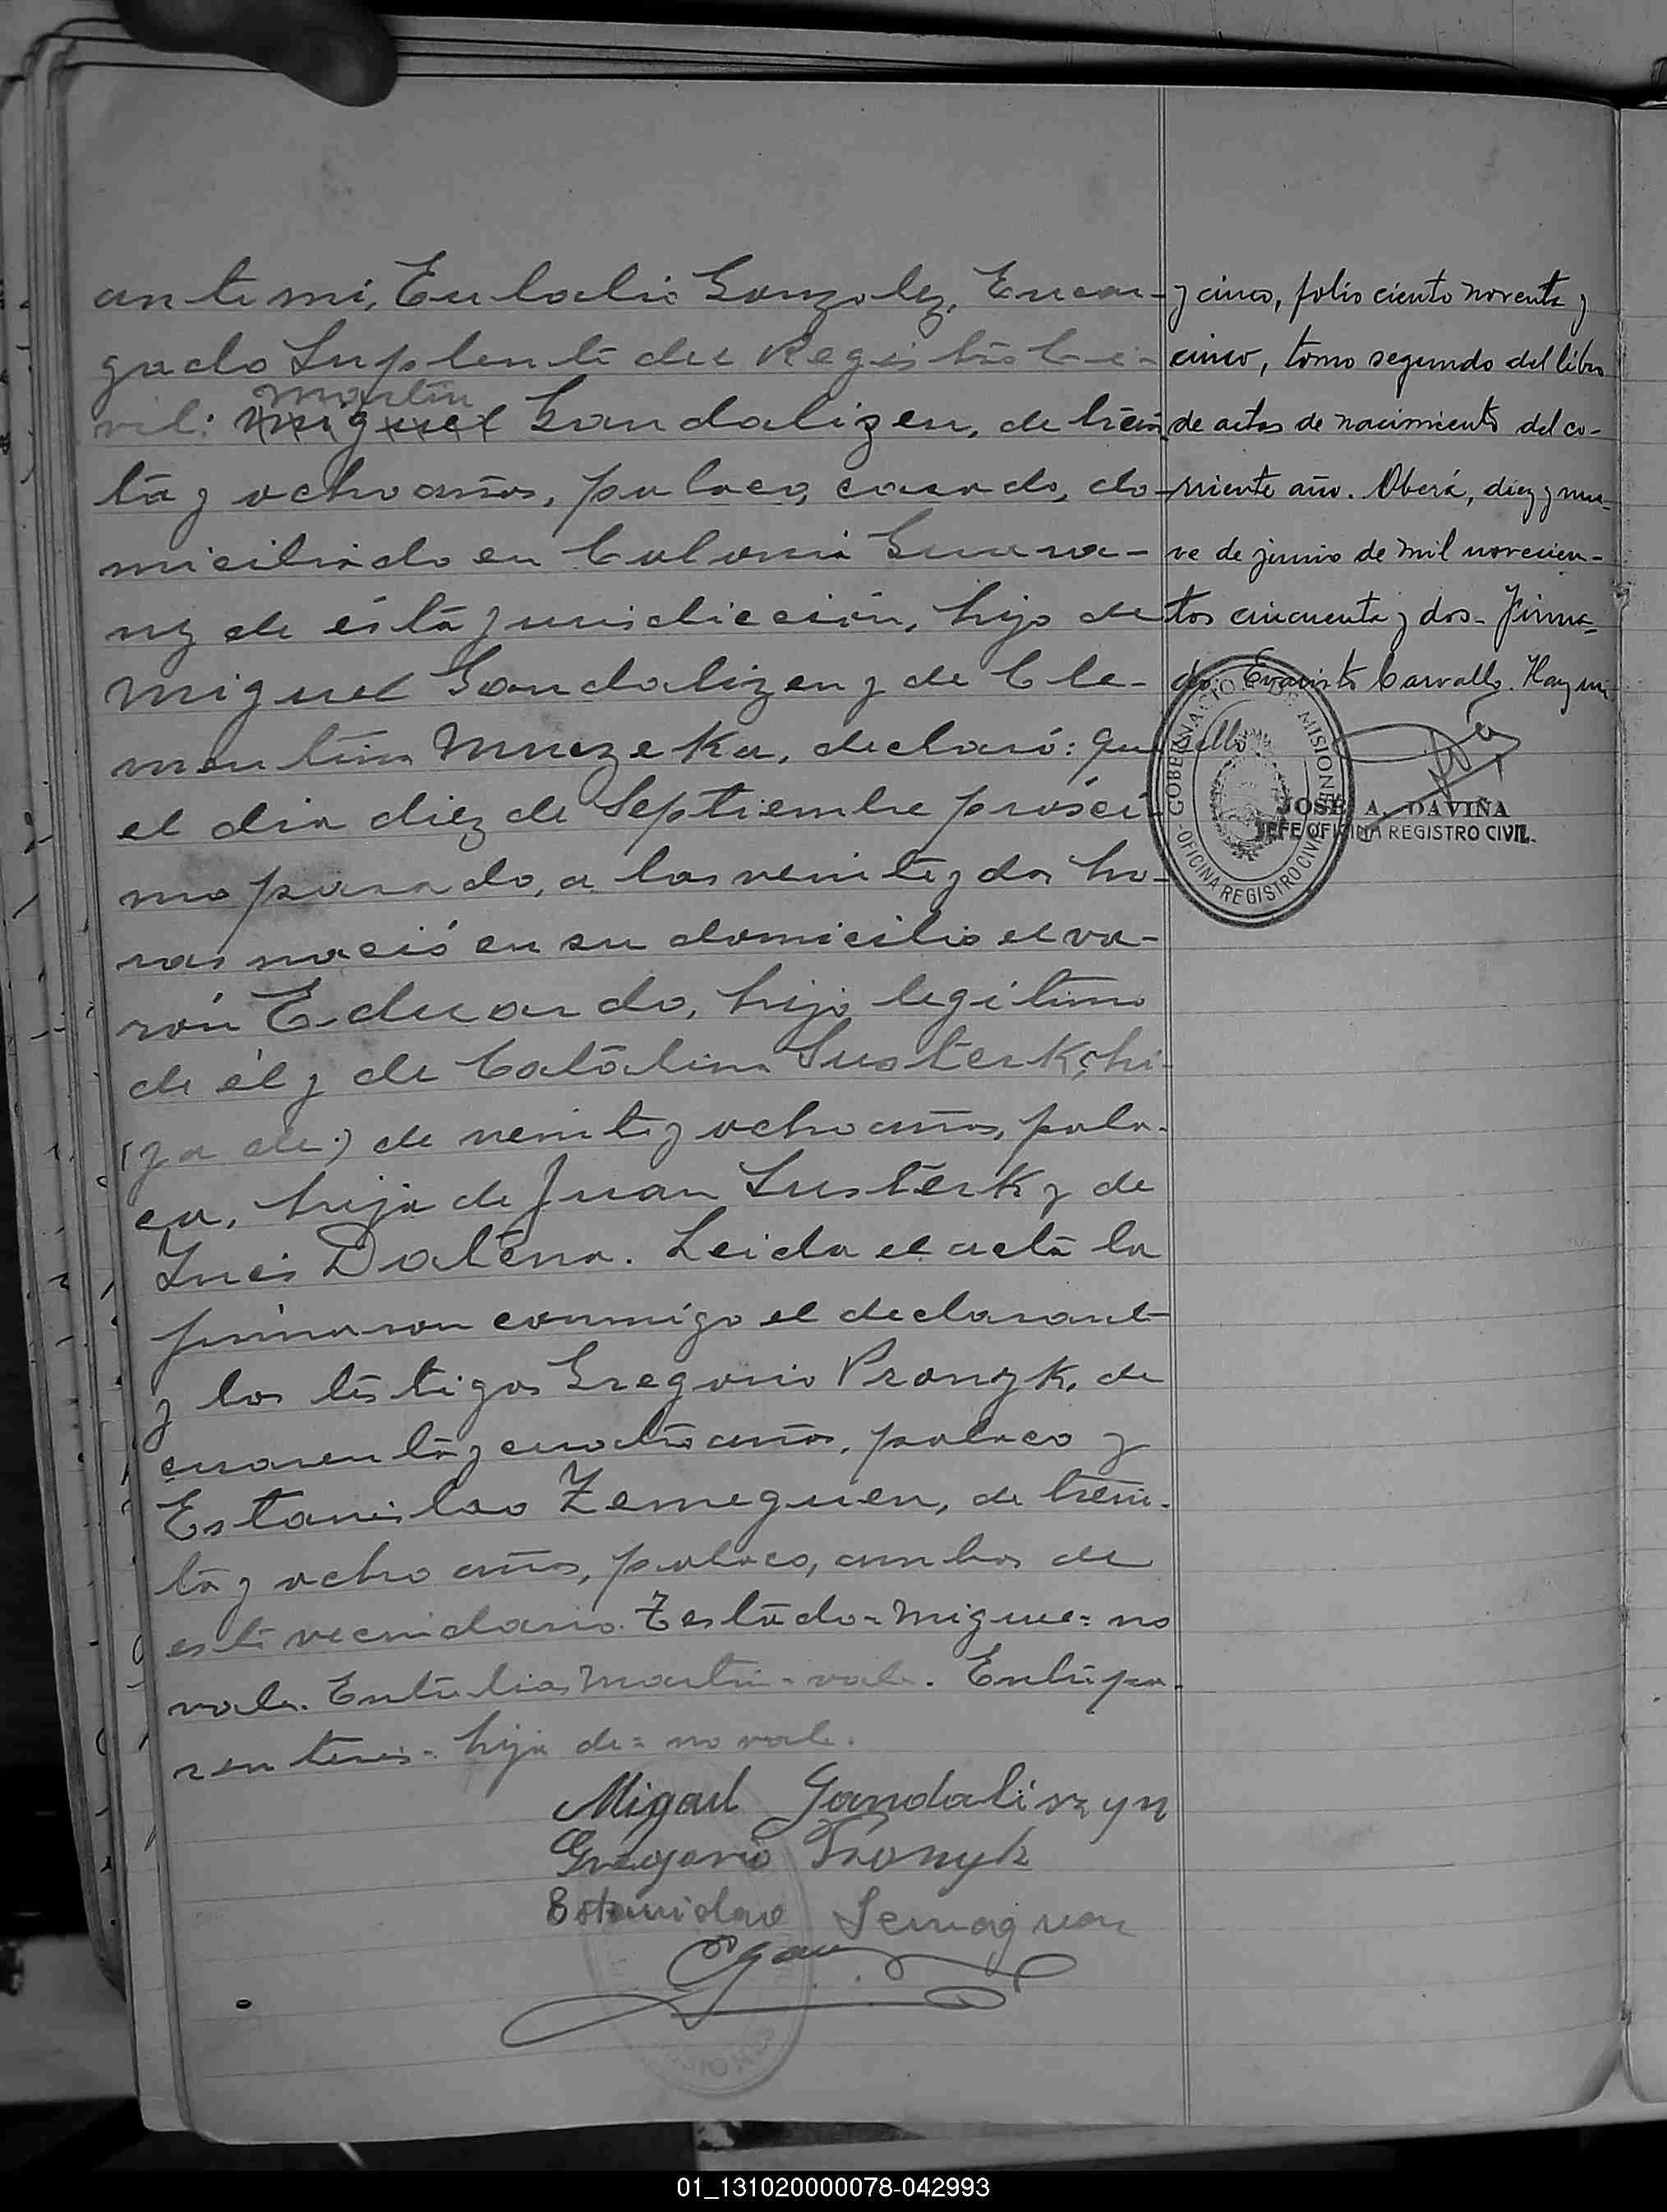 ante mi, Eulalio Gonzalez, Encar-
gado Suplente del Registro Ci-
Martin
vil: Miguel Gandalizen, de trein-
ta y ocho años, polaco, casado, do-
miciliado en Colonia Guara-
ny de ésta jurisdicción, hijo de
Miguel Gandalizen y de Cle-
mentina Muczeka, declaró: Que
el dia diez de Septiembre prósci-
mo pasado, a las veinte y dos ho-
ras nació en su domicilio el va-
rón Eduardo, hijo legítimo
de él y de Catalina Susterk, hi-
(ja de) de veinte y ocho años, pola-
ca, hija de Juan Susterk y de
Inés Datena. Leida el acta la
firmaron conmigo el declarant
y los testigos Gregorio Pronyk, de
cuarenta y cuatro años, polaco y
Estanislao Zemeguen, de trein-
ta y ocho años, polaco, ambos de
este vecindario. Testado=Migue=no
vale. Entrelias Martin=vale. Entre pa-
rentesis=hija de=no vale.
Migael Gandaliszyn
Gregorio Pronyk
Estanislao Semaguen
EGon
y cinco, folio ciento noventa y
cinco, tomo segundo del libro
de actas de nacimiento del co-
rriente año. Oberá, diez y nue-
ve de junio de mil novecien-
tos cincuenta y dos- Firma-
do: Evaristo Carvallo. Hay un
sello
GOBERNACION DE MISIONES
OFICINA REGISTRO CIVIL
JOSE A. DAVIÑA
JEFE OFICINA REGISTRO CIVIL
01_131020000078-042993